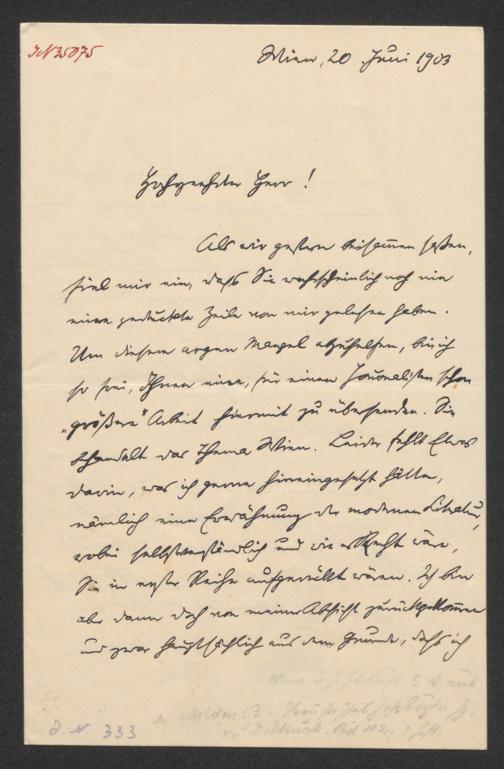 JN 35075
Wien, 20 Juni 1903
Hochgeehrter Herr!
Als wir gestern beisammen saßen,
fiel mir ein, daß Sie wahrscheinlich noch nie
eine gedruckte Zeile von mir gelesen haben.
Um diesem argen Mangel abzuhelfen, bin ich
so frei, Ihnen eine, für einen Journalisten schon
„größere“ Arbeit hiermit zu übersenden. Sie
behandelt das Thema Wien. Leider fehlt Etwas
darin, was ich gerne hineingesetzt hätte,
nämlich eine Erwähnung der modernen Literatur,
wobei selbstverständlich und wie es Recht wäre,
Sie in erster Reihe aufgerückt wären. Ich bin
aber dann doch von meiner Absicht zurückgekommen
und zwar hauptsächlich aus dem Grunde, daß ich
J. N. 333